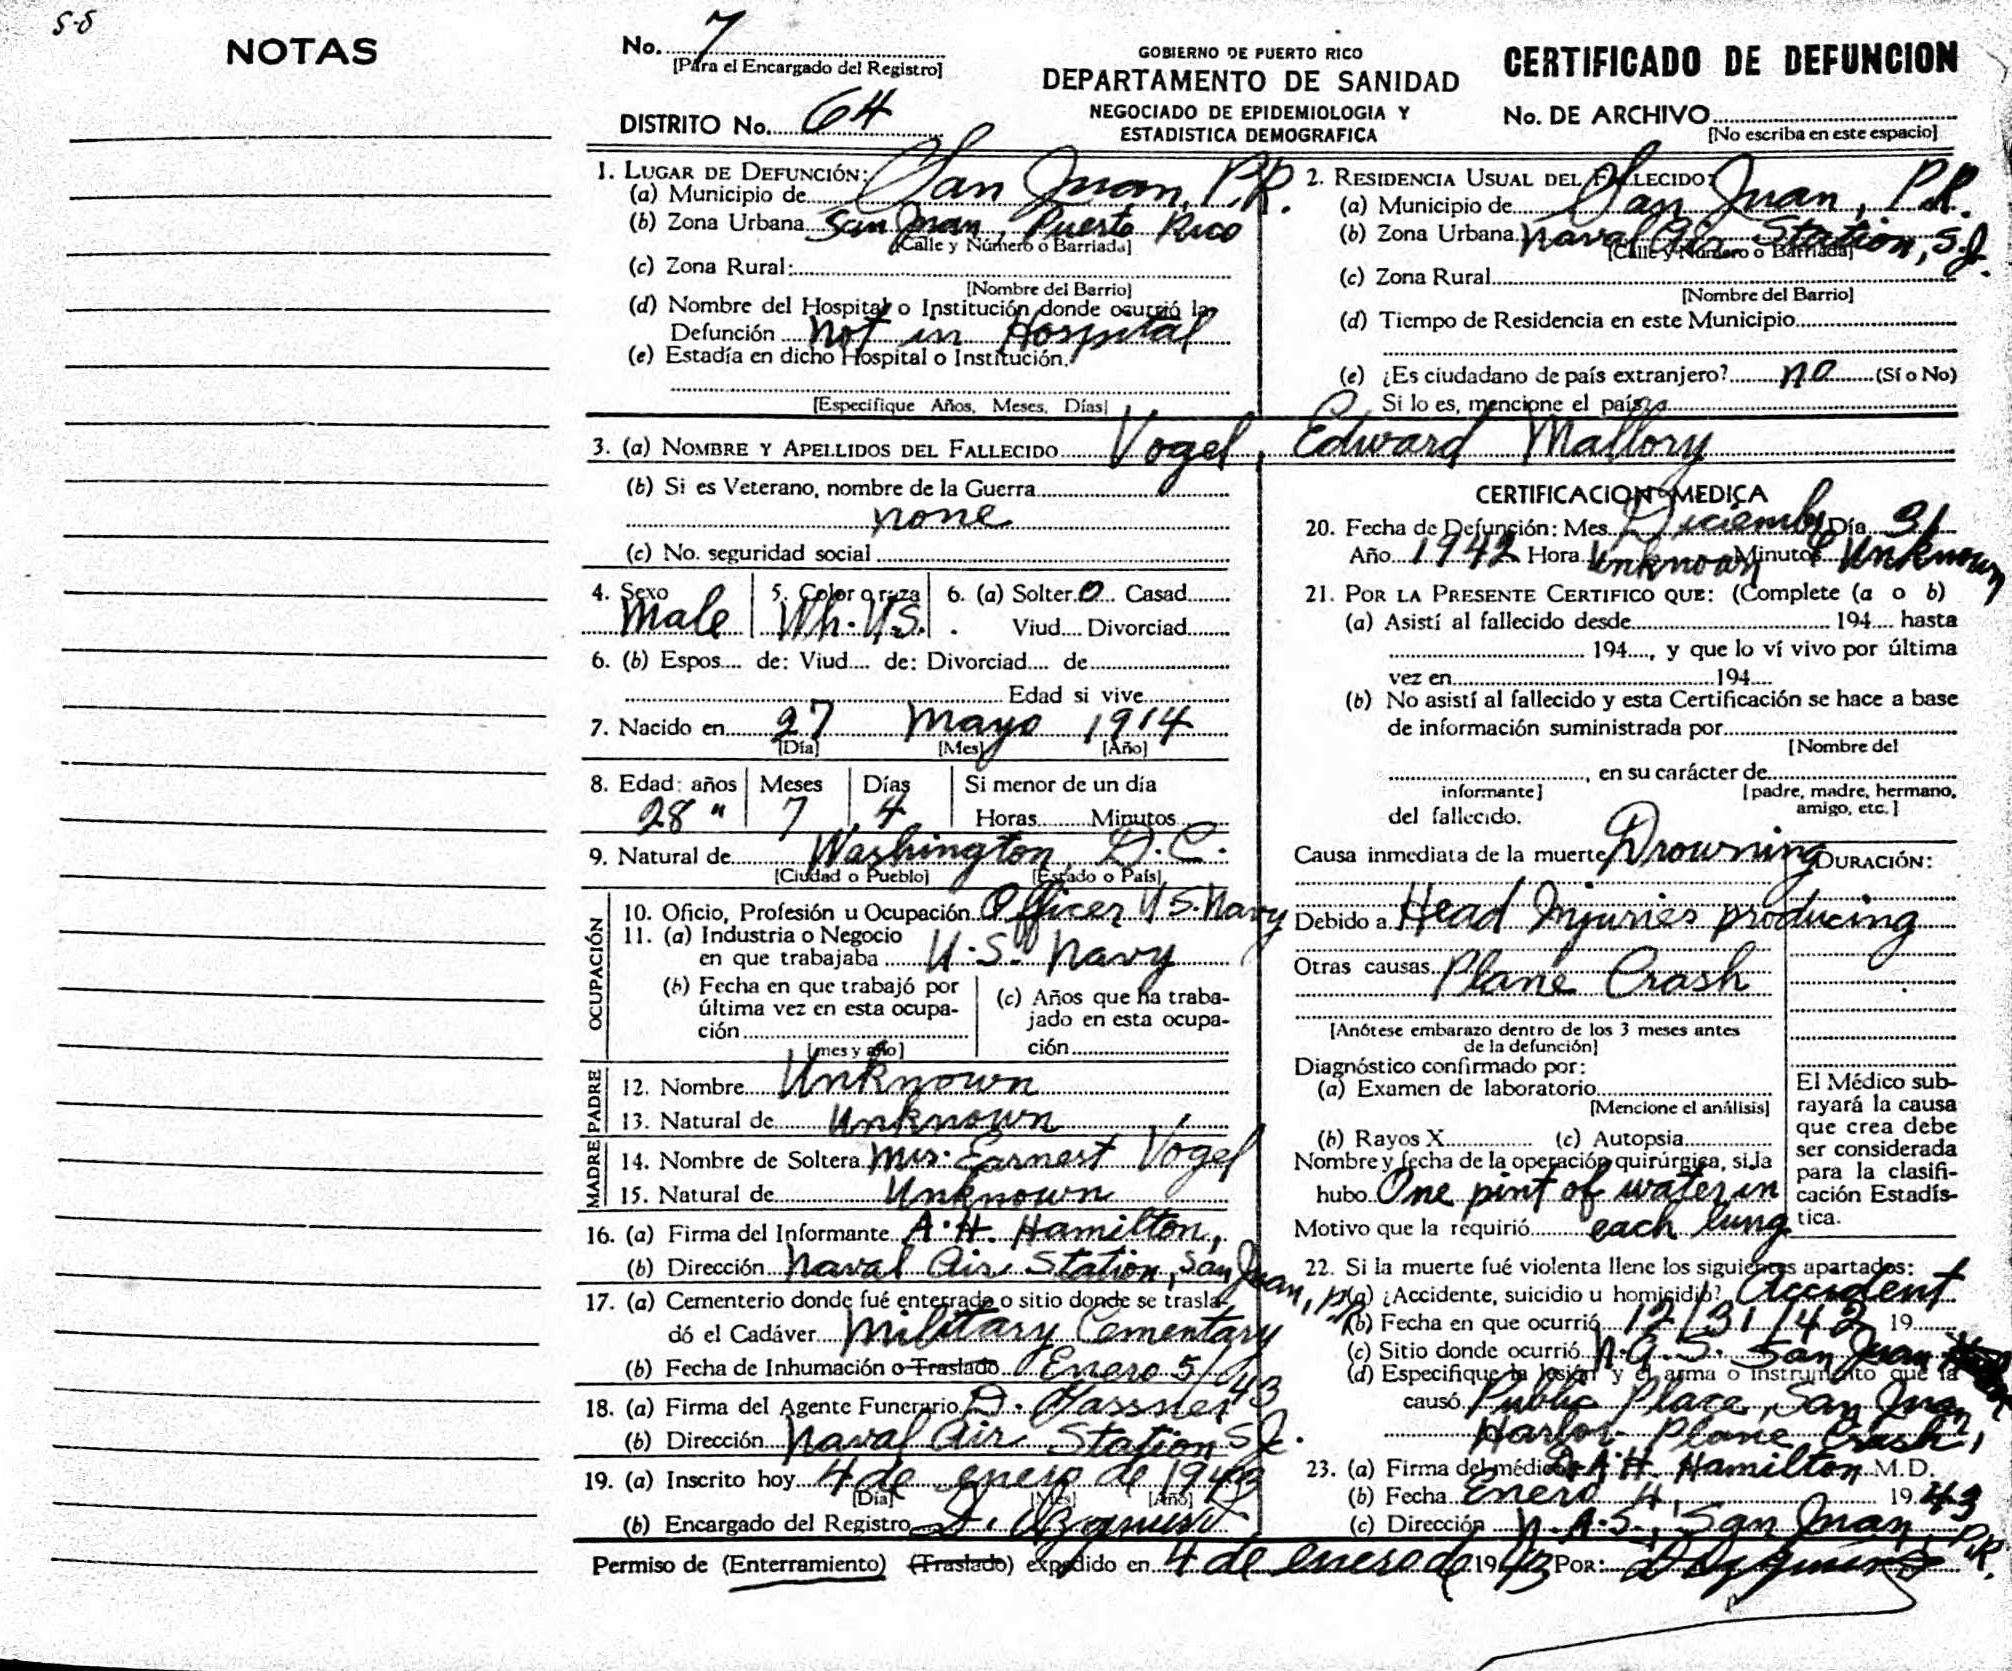 5-8
NOTAS
No. 7
[Para el Encargado del Registro]
DISTRITO No. 64
GOBIERNO DE PUERTO RICO
DEPARTAMENTO DE SANIDAD
NEGOCIADO DE EPIDEMIOLOGIA Y
ESTADISTICA DEMOGRAFICA
CERTIFICADO DE DEFUNCION
No. DE ARCHIVO
[No escriba en este espacio]
1. LUGAR DE DEFUNCIÓN:
(a) Municipio de San Juan, P.R.
(b) Zona Urbana San Juan, Puerto Rico
[Calle y Número o Barriada]
(c) Zona Rural:
[Nombre del Barrio]
(d) Nombre del Hospital o Institución donde ocurrió la
Defunción not in Hospital
(e) Estadía en dicho Hospital o Institución.
[Especifique Años, Meses, Días]
2. RESIDENCIA USUAL DEL FALLECIDO:
(a) Municipio de San Juan, P.R.
(b) Zona Urbana Naval Air Station, S.J.
[Calle y Número o Barriada]
(c) Zona Rural
[Nombre del Barrio]
(d) Tiempo de Residencia en este Municipio
(e) ¿Es ciudadano de país extranjero? no (Sí o No)
Si lo es, mencione el país
3. (a) NOMBRE Y APELLIDOS DEL FALLECIDO Vogel, Edward Mallory
(b) Si es Veterano, nombre de la Guerra
none
(c) No. seguridad social
4. Sexo 5. Color o raza 6. (a) Solter.o Casad
Male Wh. U.S. Viud Divorciad
6. (b) Espos de: Viud de: Divorciad de
Edad si vive
7. Nacido en 27 Mayo 1914
[Día] [Mes] [Año]
8. Edad: años Meses Días Si menor de un día
28 " 7 4 Horas Minutos
9. Natural de Washington, D.C.
[Ciudad o Pueblo] [Estado o País]
OCUPACIÓN
10. Oficio, Profesión u Ocupación Officer U S. Navy
11. (a) Industria o Negocio
en que trabajaba U.S. Navy
(b) Fecha en que trabajó por
última vez en esta ocupa-
ción
[mes y año]
(c) Años que ha traba-
jado en esta ocupa-
ción
PADRE
12. Nombre Unknown
13. Natural de Unknown
MADRE
14. Nombre de Soltera Mrs. Earnest Vogel
15. Natural de Unknown
16. (a) Firma del Informante A. H. Hamilton,
(b) Dirección Naval Air Station, San Juan, P.R.
17. (a) Cementerio donde fué enterrado o sitio donde se trasla-
dó el Cadáver Military Cementary
(b) Fecha de Inhumación o Traslado Enero 5/43
18. (a) Firma del Agente Funerario D.
(b) Dirección Naval Air Station S.J.
19. (a) Inscrito hoy 4 de enero de 1943
[Día] [Mes] [Año]
(b) Encargado del Registro
CERTIFICACION MEDICA
20. Fecha de Defunción: Mes Diciembre Día 31
Año 1942 Hora Unknown Minutos Unknown
21. POR LA PRESENTE CERTIFICO QUE: (Complete (a o b)
(a) Asistí al fallecido desde 194 hasta
194, y que lo ví vivo por última
vez en 194
(b) No asistí al fallecido y esta Certificación se hace a base
de información suministrada por
[Nombre del
, en su carácter de
informante] [padre, madre, hermano,
del fallecido. amigo, etc.]
Causa inmediata de la muerte Drowning DURACIÓN:
Debido a Head Injuries producing
Otras causas Plane Crash
[Anótese embarazo dentro de los 3 meses antes
de la defunción]
Diagnóstico confirmado por:
(a) Examen de laboratorio
[Mencione el análisis]
(b) Rayos X (c) Autopsia
Nombre y fecha de la operación quirúrgica, si la
hubo One pint of water in
Motivo que la requirió each lung
El Médico sub-
rayará la causa
que crea debe
ser considerada
para la clasifi-
cación Estadís-
tica.
22. Si la muerte fué violenta llene los siguientes apartados:
(a) ¿Accidente, suicidio u homicidio? Accident
(b) Fecha en que ocurrió 12/31/42 19
(c) Sitio donde ocurrió N.A.S. San Juan
(d) Especifique la lesión y el arma o instrumento que la
causó Public Place, San Juan
Harbor Plane Crash,
23. (a) Firma del médico A. H. Hamilton M.D.
(b) Fecha Enero 4, 1943
(c) Dirección N.A.S., San Juan, P.R.
Permiso de (Enterramiento) (Traslado) expedido en 4 de enero de 1943 POR: